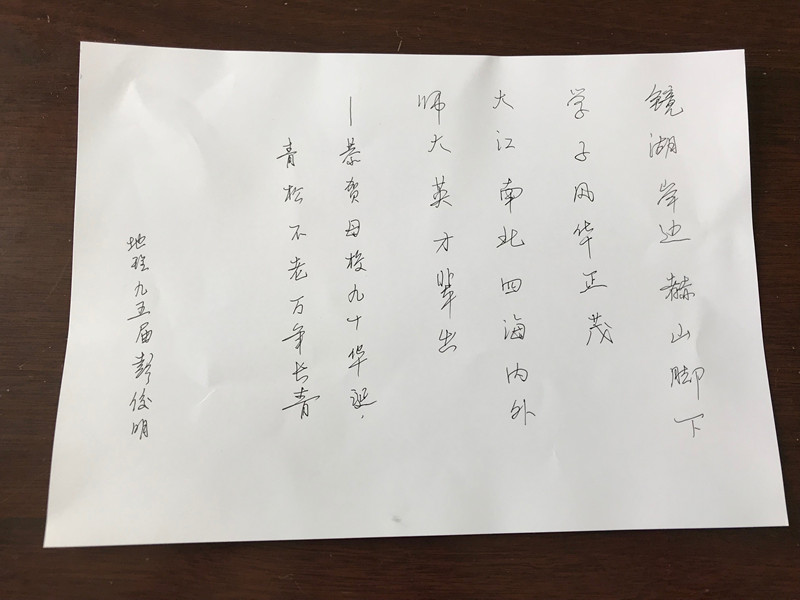 镜湖岸边 赭山脚下
学子风华正茂
大江南北四海内外
师大英才辈出
—恭贺母校九十华诞,
青松不老万年长青
地理九五届彭俊明